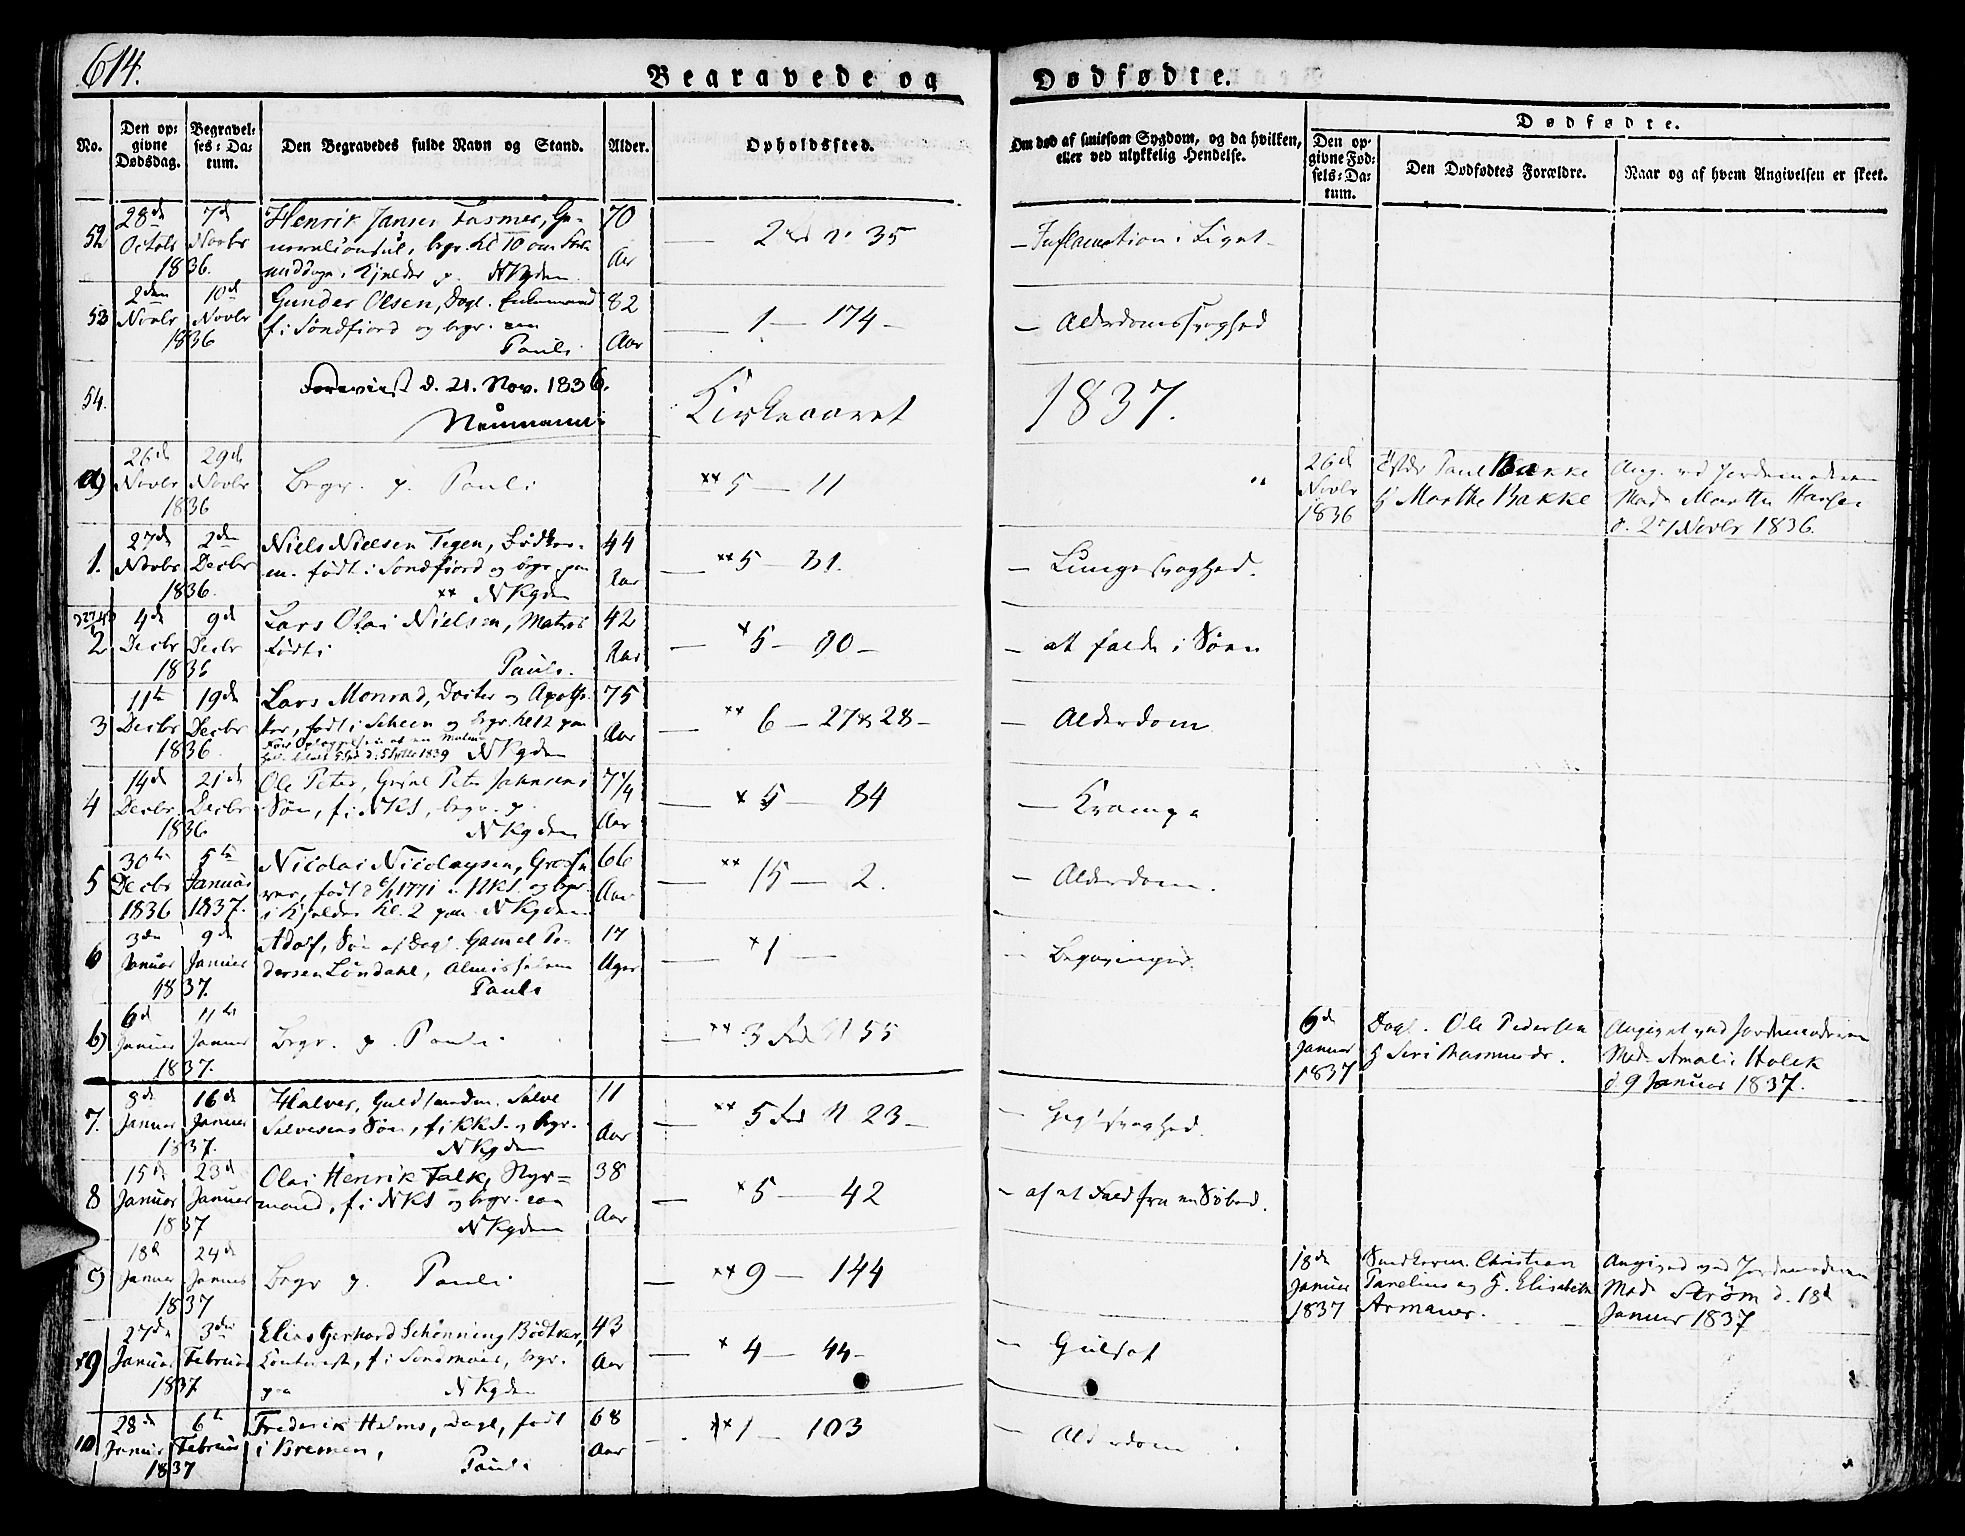 614.
Begravede og
Dødfødte.
No.
Den op-
givne
Dødsdag.
Begravel-
ses-Da-
tum.
Den Begravedes fulde Navn og Stand.
Alder.
Opholdssted.
Om død af smitsom Sygdom, og da hvilken,
eller ved ulykkelig Hendelse.
Dødfødte.
Den op-
givne Fød-
sels-Da-
tum.
Den Dødfødtes Forældre.
Naar og af hvem Angivelsen er skeet.
52 28de Octobr 1836. 7de Novbr
Henrik Jansen Fasmer, Ge-
neralconsul, begr. Kl 10 om For-
middagen i Kjelder p. NKgden
70 Aar
35
Inflamation i Livet
53 2den Novbr 1836 10de Novbr
Gunder Olsen, Dagl.
f. i Søndfiord og begr. paa
Pauli
82 Aar
1 — 174 —
— Alderdomssvaghed
54.
d. 21. Nov. 1836.
Neumann
Kirkeaaret
1837.
a) 26de Novbr 1836 29de Novbr
Begr. p. Pauli
** 5 — 11
"
26de Novbr 1836
Paul Bakke
& Marthe Bakke
Ang. ved Jordemoderen
Mad. Marthe Hansen
d. 27 Novbr 1836.
1. 27de Novbr 1836. 2den Decbr
Niels Nielsen Tegen, Bødker-
m. født i Søndfiord og begr. paa
** NKgden
44 Aar
— ** 5 — 31.
— Lungesvaghed.
2 4de Decbr 1836 9de Decbr
Lars Olai Nielsen, Matros
født i
Pauli.
42 Aar
— * 5 — 90 —
— at falde i Søen
3 11te Decbr 1836. 19de Decbr
Lars Monrad, Docter og Apothe-
ker, født i Scheen og begr. Kl 12 paa
1839 NKgden
75 Aar
— ** 6 — 27 & 28 —
— Alderdom
4 14de Decbr 1836 21de Decbr
Ole Peter, Peter Johnsens
Søn, f. i NKS, begr. p.
NKgden
7¼ Aar
— * 5 — 84
— Krampe
5 30te Decbr 1836 5te Januar 1837.
Nicolai Nicolaysen, Grosse-
rer, født 1771 i NKS. og begr.
i Kjelder Kl. 2 paa NKgden
66 Aar
— ** 15 — 2.
— Alderdom.
6 3de Januar 1837. 9de Januar
Adolf, Søn af Dagl. Gamel Pe-
dersen Lundahl, Almisselem
Pauli
17 Uger
— * 1 —
b) 6de Januar 1837. 11te Januar
Begr. p. Pauli
— ** 3 55
6de Januar 1837
Dagl. Ole Pedersen
& Siri Rasmusdr.
Angivet ved Jordemoderen
Mad. Amali Holck
d 9 Januar 1837.
7. 8de Januar 1837. 16de Januar
Halvor, Salve
Salvesens Søn, f. i KKS. og begr.
NKgden
11 Aar
— ** 5 23 —
8 15de Januar 1837 23de Januar
Olai Henrik Falk, Styr-
mand, f. i NKS og begr. paa
NKgden
38 Aar
— * 5 — 42
— af at Fald fra en Søbod.
c) 18de Januar 1837 24de Januar
Begr p. Pauli
— ** 9 — 144
18de Januar 1837
Christian
& Elisabeth
Armauer.
Angived ved Jordemoderen
Mad. Strøm d. 18de
Januar 1837
*9 27de Januar 1837 3die Februar
Elias Gerhard Schønning Bødtker,
f. i Søndmøer, begr.
paa NKgden
43 Aar
— * 4 — 44 —
— Gulsot
10 28de Januar 1837 6te Februar
Frederik Helms, Dagl, født
i Bremen,
Pauli
68 Aar
— ** 1 — 103
— Alderdom